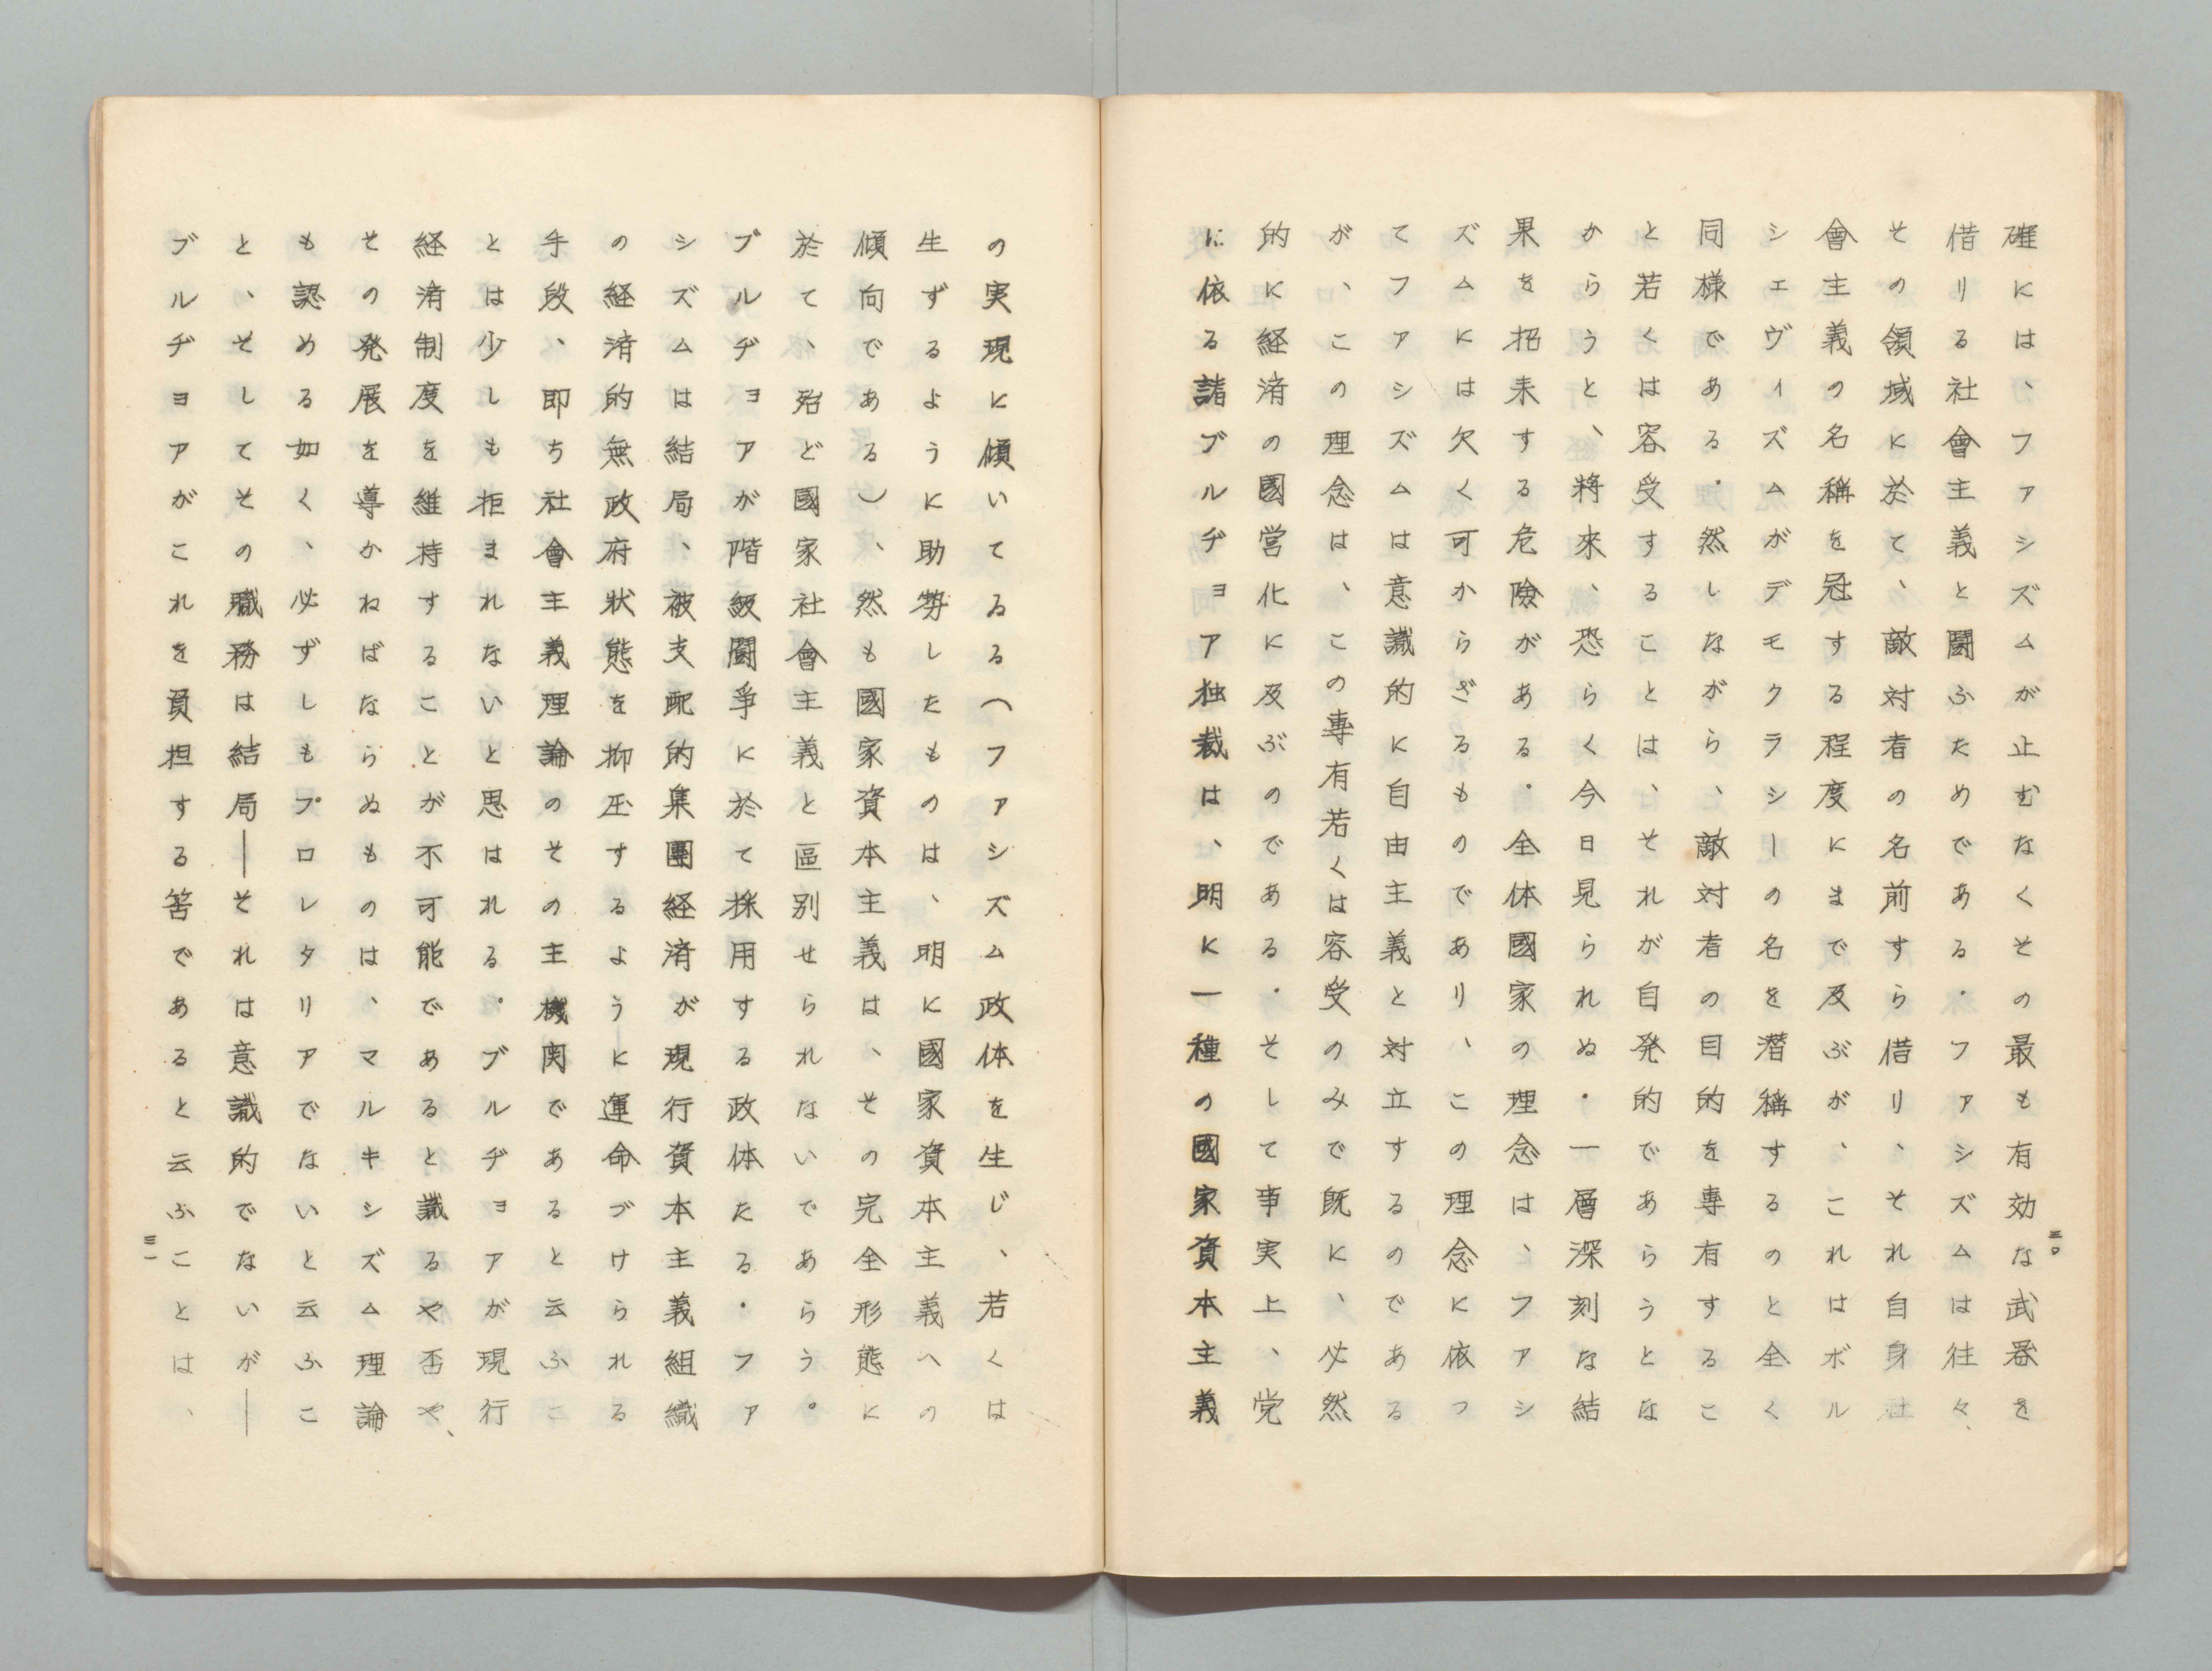 確には、ファシズムが止むなくその最も有効な武器を
借りる社會主義と闘ふためである．ファシズムは往々、
その領域に於て、敵対者の名前すら借り、それ自身社
會主義の名稱を冠する程度にまで及ぶが、これはボル
シェヴィズムがデモクラシーの名を潜稱するのと全く
同様である．然しながら、敵対者の目的を専有するこ
と若くは容受することは、それが自発的であらうとな
からうと、将來、恐らく今日見られぬ．一層深刻な結
果を招来する危險がある．全体國家の理念は、ファシ
ズムには欠く可からざるものであり、この理念に依つ
てファシズムは意識的に自由主義と対立するのである
が、この理念は、この專有若くは容受のみで既に、必然
的に経済の國営化に及ぶのである．そして事実上、党
に依る諸ブルヂョア独裁は、明に一種の國家資本主義
三〇
の実現に傾いてゐる（ファシズム政体を生じ、若くは
生ずるように助勢したものは、明に國家資本主義への
傾向である）、然も國家資本主義は、その完全形態に
於て、殆ど國家社會主義と區別せられないであらう。
ブルヂョアが階級闘爭に於て採用する政体たる．ファ
シズムは結局、被支配的集團経済が現行資本主義組織
の経済的無政府状態を抑圧するように運命づけられる
手段、即ち社會主義理論のその主機関であると云ふこ
とは少しも拒まれないと思はれる．ブルヂョアが現行
経済制度を維持することが不可能であると識るや否や、
その発展を導かねばならぬものは、マルキシズム理論
も認める如く、必ずしもプロレタリアでないと云ふこ
と、そしてその職務は結局―それは意識的でないが―
ブルヂョアがこれを負担する筈であると云ふことは、
三一